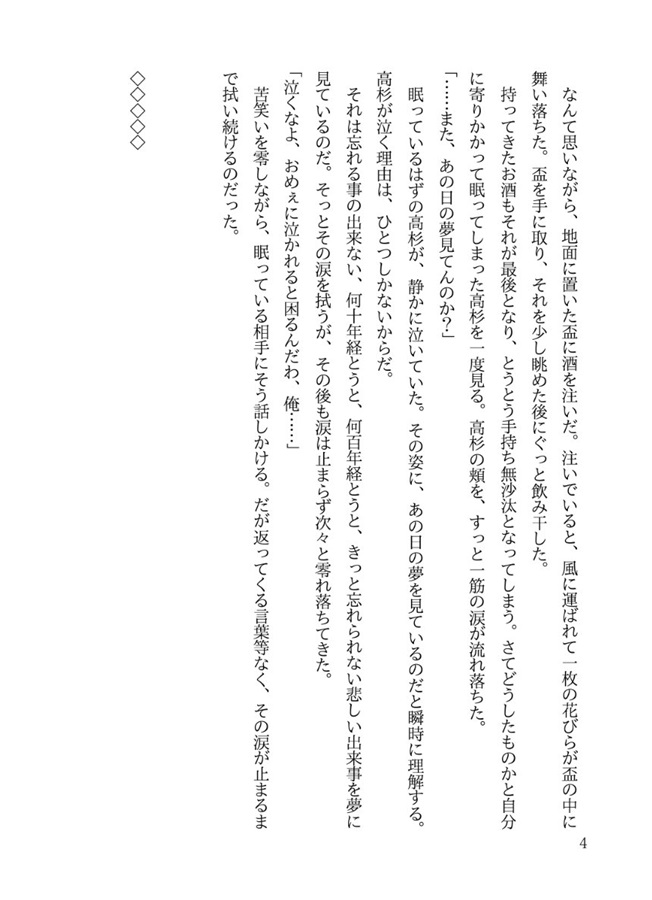 なんて思いながら、地面に置いた盃に酒を注いだ。注いでいると、風に運ばれて一枚の花びらが盃の中に
舞い落ちた。盃を手に取り、それを少し眺めた後にぐっと飲み干した。
持ってきたお酒もそれが最後となり、とうとう手持ち無沙汰となってしまう。さてどうしたものかと自分
に寄りかかって眠ってしまった高杉を一度見る。高杉の頬を、すっと一筋の涙が流れ落ちた。
「……また、あの日の夢見てんのか?」
眠っているはずの高杉が、静かに泣いていた。その姿に、あの日の夢を見ているのだと瞬時に理解する。
高杉が泣く理由は、ひとつしかないからだ。
それは忘れる事の出来ない、何十年経とうと、何百年経とうと、きっと忘れられない悲しい出来事を夢に
見ているのだ。そっとその涙を拭うが、その後も涙は止まらず次々と零れ落ちてきた。
「泣くなよ、おめぇに泣かれると困るんだわ、俺……」
苦笑いを零しながら、眠っている相手にそう話しかける。だが返ってくる言葉等なく、その涙が止まるま
で拭い続けるのだった。
◇◇◇◇◇
4